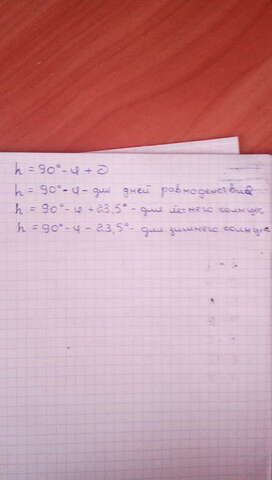 h = 90° - φ + δ
h = 90° - φ - для дней равноденствий
h = 90° - φ + 23,5° - для летнего солнцес
h = 90° - φ - 23,5° - для зимнего солнцес